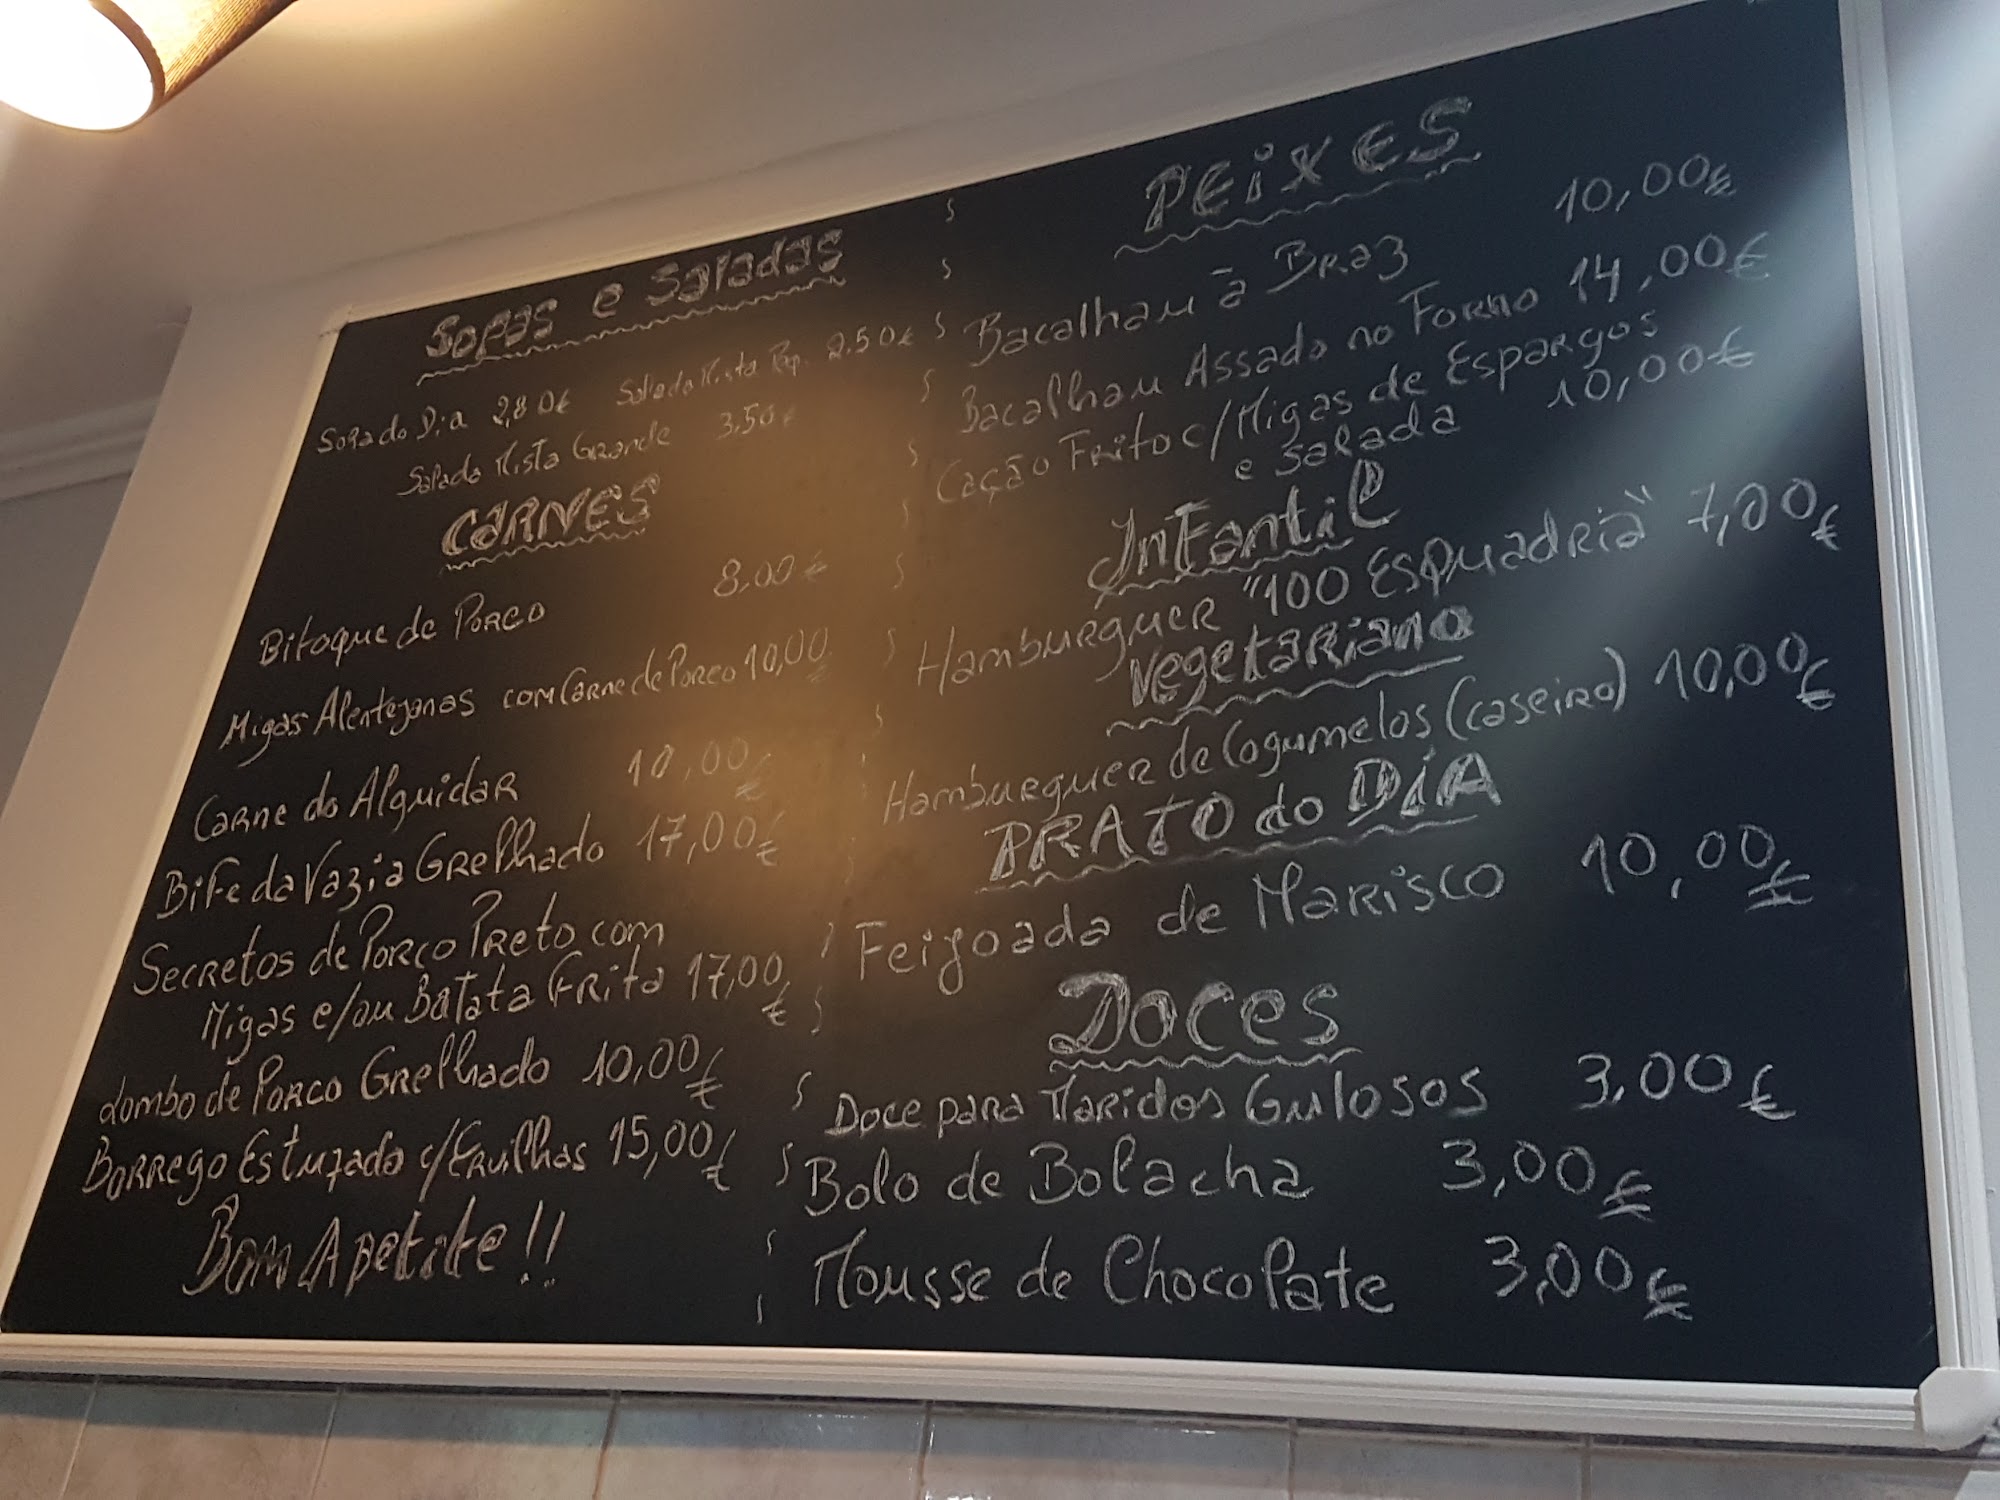 Sopas e Saladas
Sopa do Dia 2,80€ Salada Mista Peq. 2.50€
Salada Mista Grande 3.50€
CARNES
Bitoque de Porco 8,00€
Migas Alentejanas com Carne de Porco 10,00€
Carne do Alguidar 10,00€
Bife da Vazia Grelhado 17,00€
Secretos de Porco Preto com
Migas e/ou Batata Frita 17,00€
Lombo de Porco Grelhado 10,00€
Borrego Estufado c/Ervilhas 15,00€
Bom Apetite!!
PEiXES
Bacalhau à Braz 10,00€
Bacalhau Assado no Forno 14,00€
Cação Frito c/Migas de Espargos
e Salada 10,00€
Infantil
Hamburguer "100 Esquadria" 7,00€
Vegetariano
Hamburguer de Cogumelos (caseiro) 10,00€
PRATO do DIA
Feijoada de Marisco 10,00€
Doces
Doce para Maridos Gulosos 3,00€
Bolo de Bolacha 3,00€
Mousse de Chocolate 3,00€